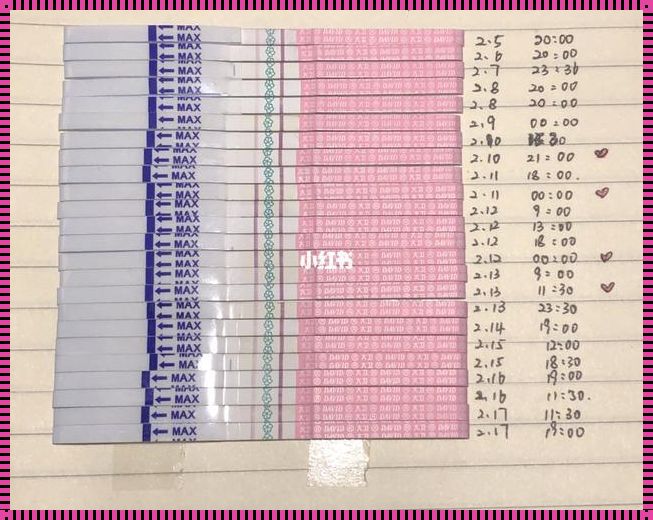 MAX 2.5 20:00
MAX 2.6 20:00
MAX 2.7 23:30
MAX 2.8 20:00
MAX 2.8 20:00
MAX 2.9 00:00
MAX 2.10
MAX 2.10 21:00
MAX 2.11 18:00.
MAX 2.11 00:00
MAX 2.12 9:00
MAX 2.12 13:00
MAX 2.12 18:00
MAX 2.12 00:00
小红书
MAX 2.13 9:00
MAX 2.13 11:30
MAX 2.13 23:30
MAX 2.14 19:00
MAX 2.15 12:00
MAX 2.15 18:30
MAX 2.16 19:00
MAX 2.16 11:30.
MAX 2.17 11:30
MAX 2.17 19:00